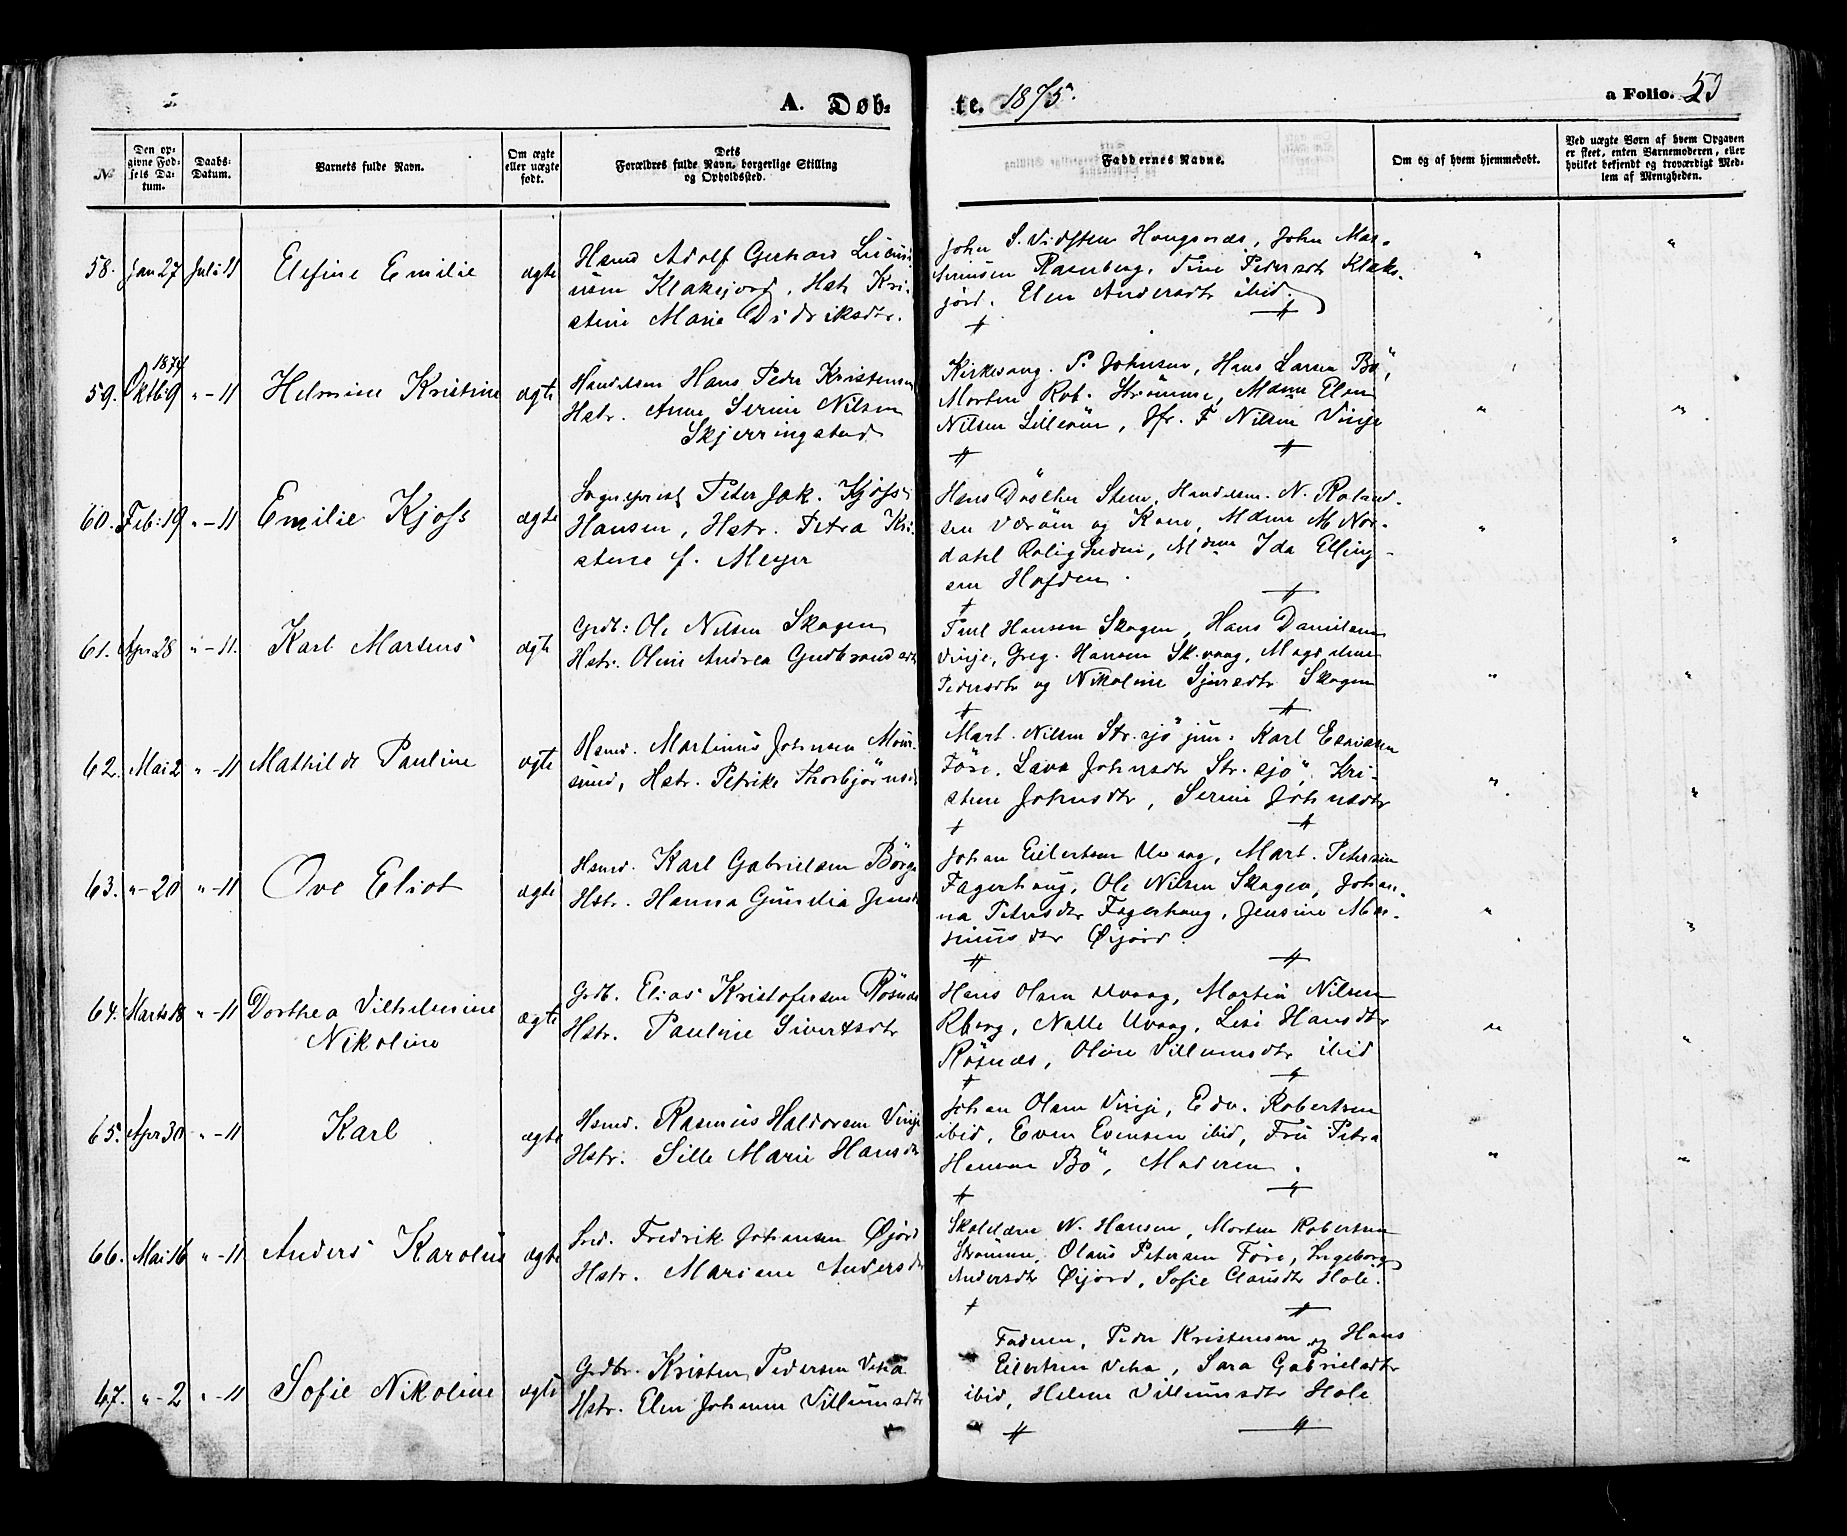 A. Døb-
te. 1875.
a Folio. 53
№
Den op-
givne Fød-
sels Da-
tum.
Daabs-
Datum.
Barnets fulde Navn.
Om ægte
eller uægte
født.
Dets
Forældres fulde Navn, borgerlige Stilling
og Opholdssted.
Faddernes Navne.
Om og af hvem hjemmedøbt.
Ved uægte Børn af hvem Opgaven
er skeet, enten Barnemoderen, eller
hvilket bekjendt og troværdigt Med-
lem af Menigheden.
58. Jan 27 Juli 11 Elefine Emilie ægte
Hsmd Adolf Gerhard
Klaksjord, Hst. Kri-
stine Marie Didriksdtr.
John S. Vidsten Hongsnæs, John Mar-
Rasenberg, Sine Pedersdtr Klaks-
jord. Elen Andersdtr ibid.
1874
59. Oktb 9 " - 11 Helmine Kristine ægte
Handelsm Hans Peder Kristensen
Hstr. Anne Serine Nilsen
Skjerringstad
Kirkesang. P. Johnsen, Hans Larsen Bö,
Morten Rob. Strömme, Mdme Elen
Nilsen Lilleröen, Jfr. F Nilsen Vinje
60. Feb: 19 " - 11 Emilie Kjøss ægte
Sogneprest Peter Jak. Kjøss
Hansen, Hstr. Petra Kri-
stine f. Meyer
Hans Döscher Stene, Handelsm. N. Roland-
sen Værøen og Kone, Mdme M Nor-
dahl Roligheden, Mdme Ida Elling-
sen Hofden.
61. Apr 28 " - 11. Karl Martens ægte
Grdb: Ole Nilsen Skagen
Hstr. Oline Andrea Gudbrandsdtr
Paul Hansen Skagen, Hans Danielsen
Vinje, Greg. Hansen Sk.vaag, Magdalene
Pedersdtr og Nikoline Sjursdtr Skagen
62. Mai 2 " - 11 Mathilde Pauline ægte
Hsmd. Martinus Johnsen Maur-
sund, Hstr. Petrike Thorbjörnsdtr
Mart. Nilsen Str.sjö jun. Karl Esaiasen
Före. Lava Johnsdtr Str.sjö, Kri-
stine Johnsdtr, Serine Johnsdtr
63. " - 20 " - 11 Ove Eliot ægte
Hsmd. Karl Gabrielsen Börge
Hstr. Hanna Gunelia Jensdtr
Johan Eilertsen Uvaag, Mart. Petersen
Fagerhaug, Ole Nilsen Skagen, Johan-
na Petersdtr Fagerhaug, Jensine Mar-
tinusdtr Øijord.
64. Marts 18 " - 11 Dorthea Vilhelmine
Nikoline ægte
Grdb. Elias Kristofersen Rösnæs
Hstr. Pauline Sivertsdtr
Hans Olsen Uvaag, Martin Nilsen
Rberg, Nalle Uvaag, Lisi Hansdtr
Rösnæs, Oline Villumsdtr ibid
65. Apr 30 " - 11 Karl ægte
Hsmd. Rasmus Haldorsen Vinje
Hstr. Sille Marie Hansdtr
Johan Olsen Vinje, Edv. Robertsen
ibid, Even Evensen ibid, Fru Petra
Hansen Bö, Moderen.
66. Mai 16 " - 11 Anders Karolus ægte
Fredrik Johansen Øjord
Hstr. Mariane Andersdtr
Skolelærer N. Hansen, Morten Robertsen
Strömme, Olaus Petersen Före, Ingeborg
Andersdtr Øijord, Sofie Clausdtr Hole.
67. " - 2 " - 11 Sofie Nikoline ægte
Grdbr. Kristen Pedersen Veha
Hstr. Elen Johanna Villumsdtr
Faderen, Peder Kristensen og Hans
Eilertsen Veha, Sara Gabrielsdtr
ibid, Helene Villumsdtr Hole